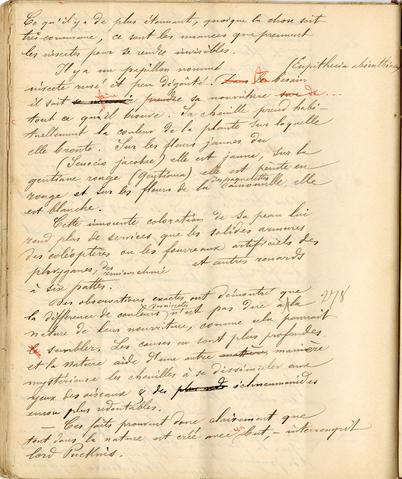 Ce qu'il y a de plus étonnant, quoique la chose soit
très commune, ce sont les nuances que prennent
les insectes pour se rendre invisibles.
Il y a un papillon nommé (Eupithecia absinthia
insecte rusé et peu dégoûté. Dans la besoin
il sait prendre sa nourriture
tout ce qu'il trouve. Sa chenille prend habi-
tuellement la couleur de la plante sur laquelle
elle broute. Sur les fleurs jaunes du
(Senecio jacobae) elle est jaune, sur la
gentiane rouge (Gentiana) elle est peinte en
rouge, et sur les fleurs de la camomille elle
est blanche.
Cette innocente coloration de sa peau lui
rend plus de services, que les solides armures
des coléoptères ou les fourreaux artificiels des
phryganes, et autres renards
à six pattes.
Des observations exactes ont démontré que 278
la différence de couleur des insectes n'est pas due à la
nature de leur nourriture, comme cela pourrait
sembler. Les causes en sont plus profondes
et la nature aide d'une autre manière
mystérieuse les chenilles à se dissimuler aux
yeux des oiseaux & des ichneumonides
encore plus redoutables.
— Ces faits prouvent donc clairement que
tout dans la nature est créé avec but, — interrompit
lord Pucklis.